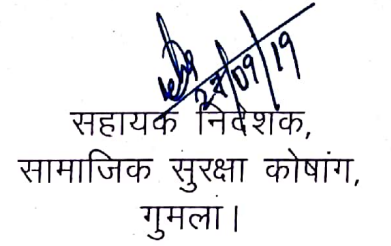 27/09/19
सहायक निदेशक,
सामाजिक सुरक्षा कोषांग,
गुमला।